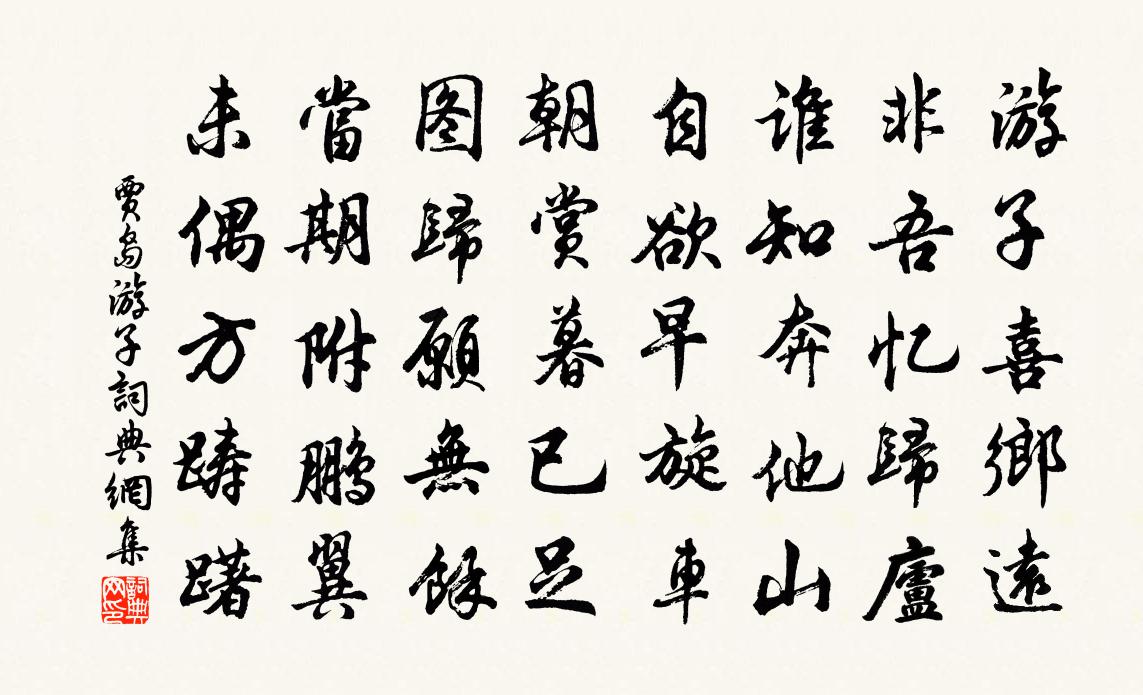 游子喜鄉遠
非吾忆歸廬
谁知奔他山
自欲早旋車
朝賞暮已足
图歸願無餘
當期附鵬翼
未偶方踌躇
賈島游子詞典網集
詞典网印